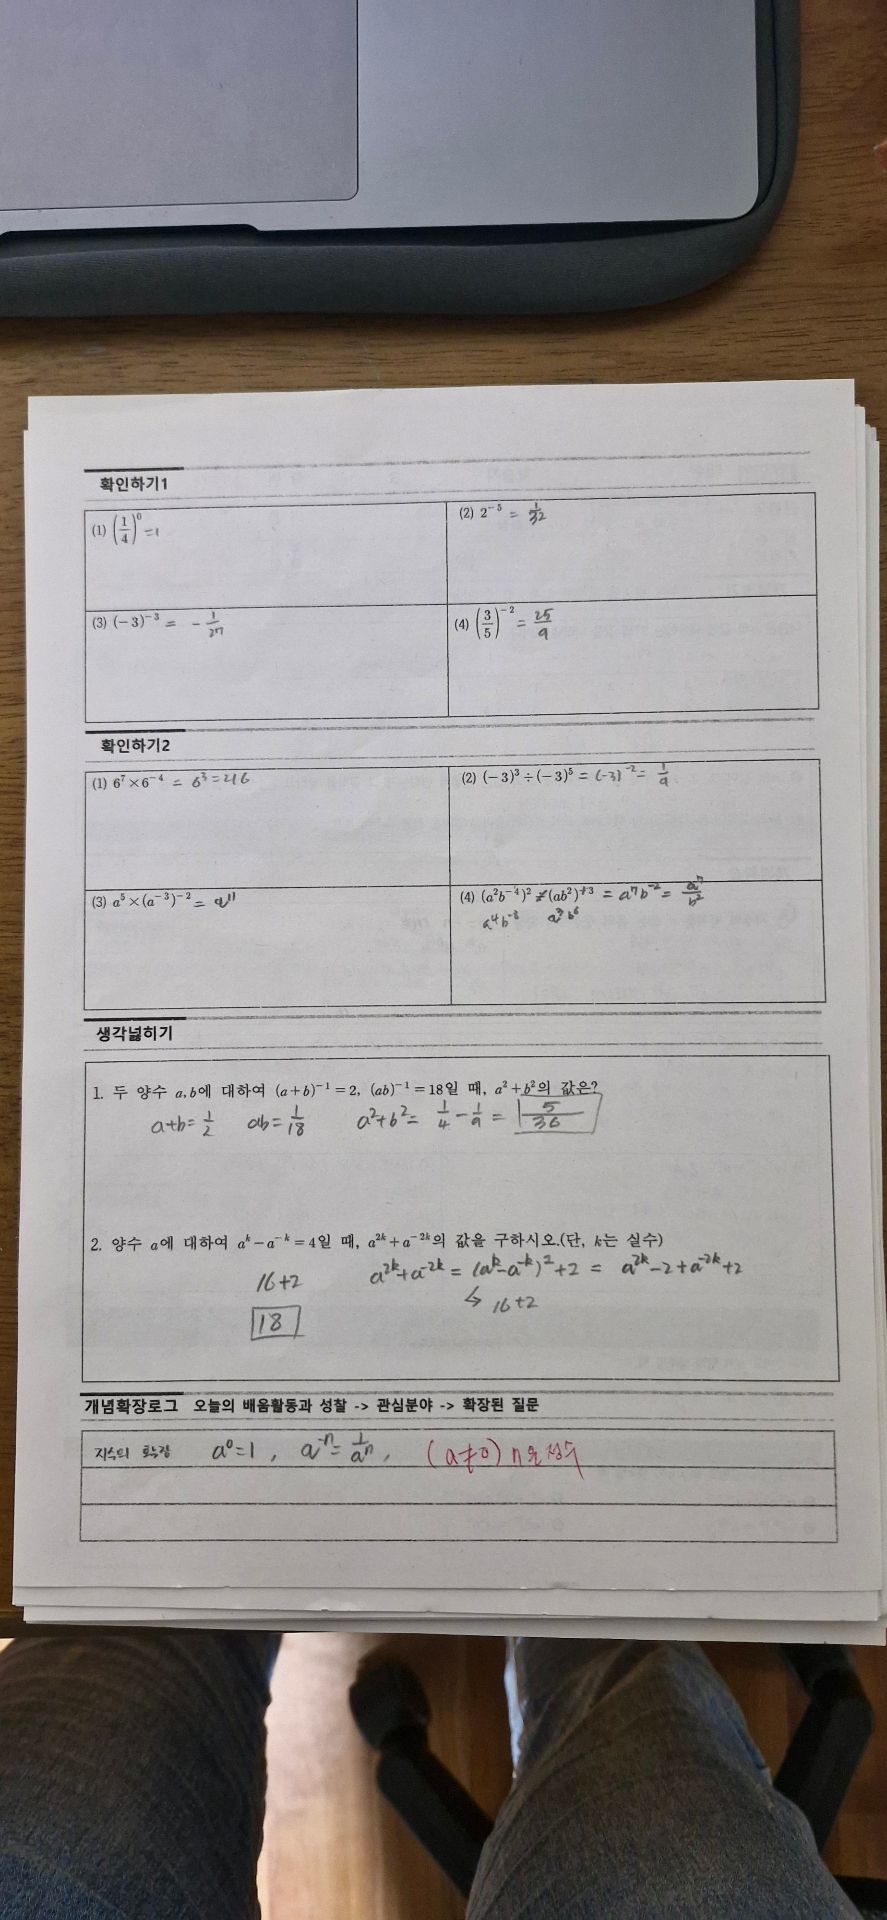 확인하기1
(1) (1/4)^0 =1
(2) 2^-5 = 1/32
(3) (-3)^-3 = -1/27
(4) (3/5)^-2 = 25/9
확인하기2
(1) 6^7×6^-4 = 6^3=216
(2) (-3)^3÷(-3)^5 = (-3)^-2= 1/9
(3) a^5×(a^-3)^-2 = a^11
(4) (a^2b^-4)^2 (ab^2)^3 = a^7b^-2= a^7/b^2
a^4b^-8 a^3b^6
생각넓히기
1. 두 양수 a,b에 대하여 (a+b)^-1=2, (ab)^-1=18일 때, a^2+b^2의 값은?
a+b=1/2 ab=1/18 a^2+b^2= 1/4-1/9 = 5/36
2. 양수 a에 대하여 a^k-a^-k=4일 때, a^2k+a^-2k의 값을 구하시오.(단, k는 실수)
16+2 a^2k+a^-2k = (a^k-a^-k)^2+2 = a^2k-2+a^-2k+2
↳ 16+2
18
개념확장로그 오늘의 배움활동과 성찰 -> 관심분야 -> 확장된 질문
지수의 확장 a^0=1, a^-n=1/a^n, (a≠0) n은 정수